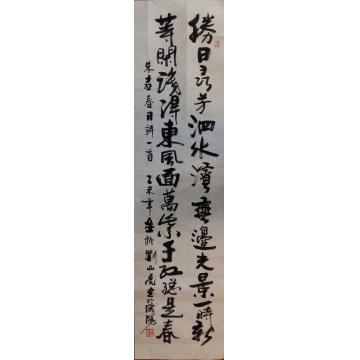 勝日尋芳泗水濱無邊光景一時新
等閑識得東風面萬紫千紅總是春
朱熹春日詩一首 乙未年 劉山虎書於